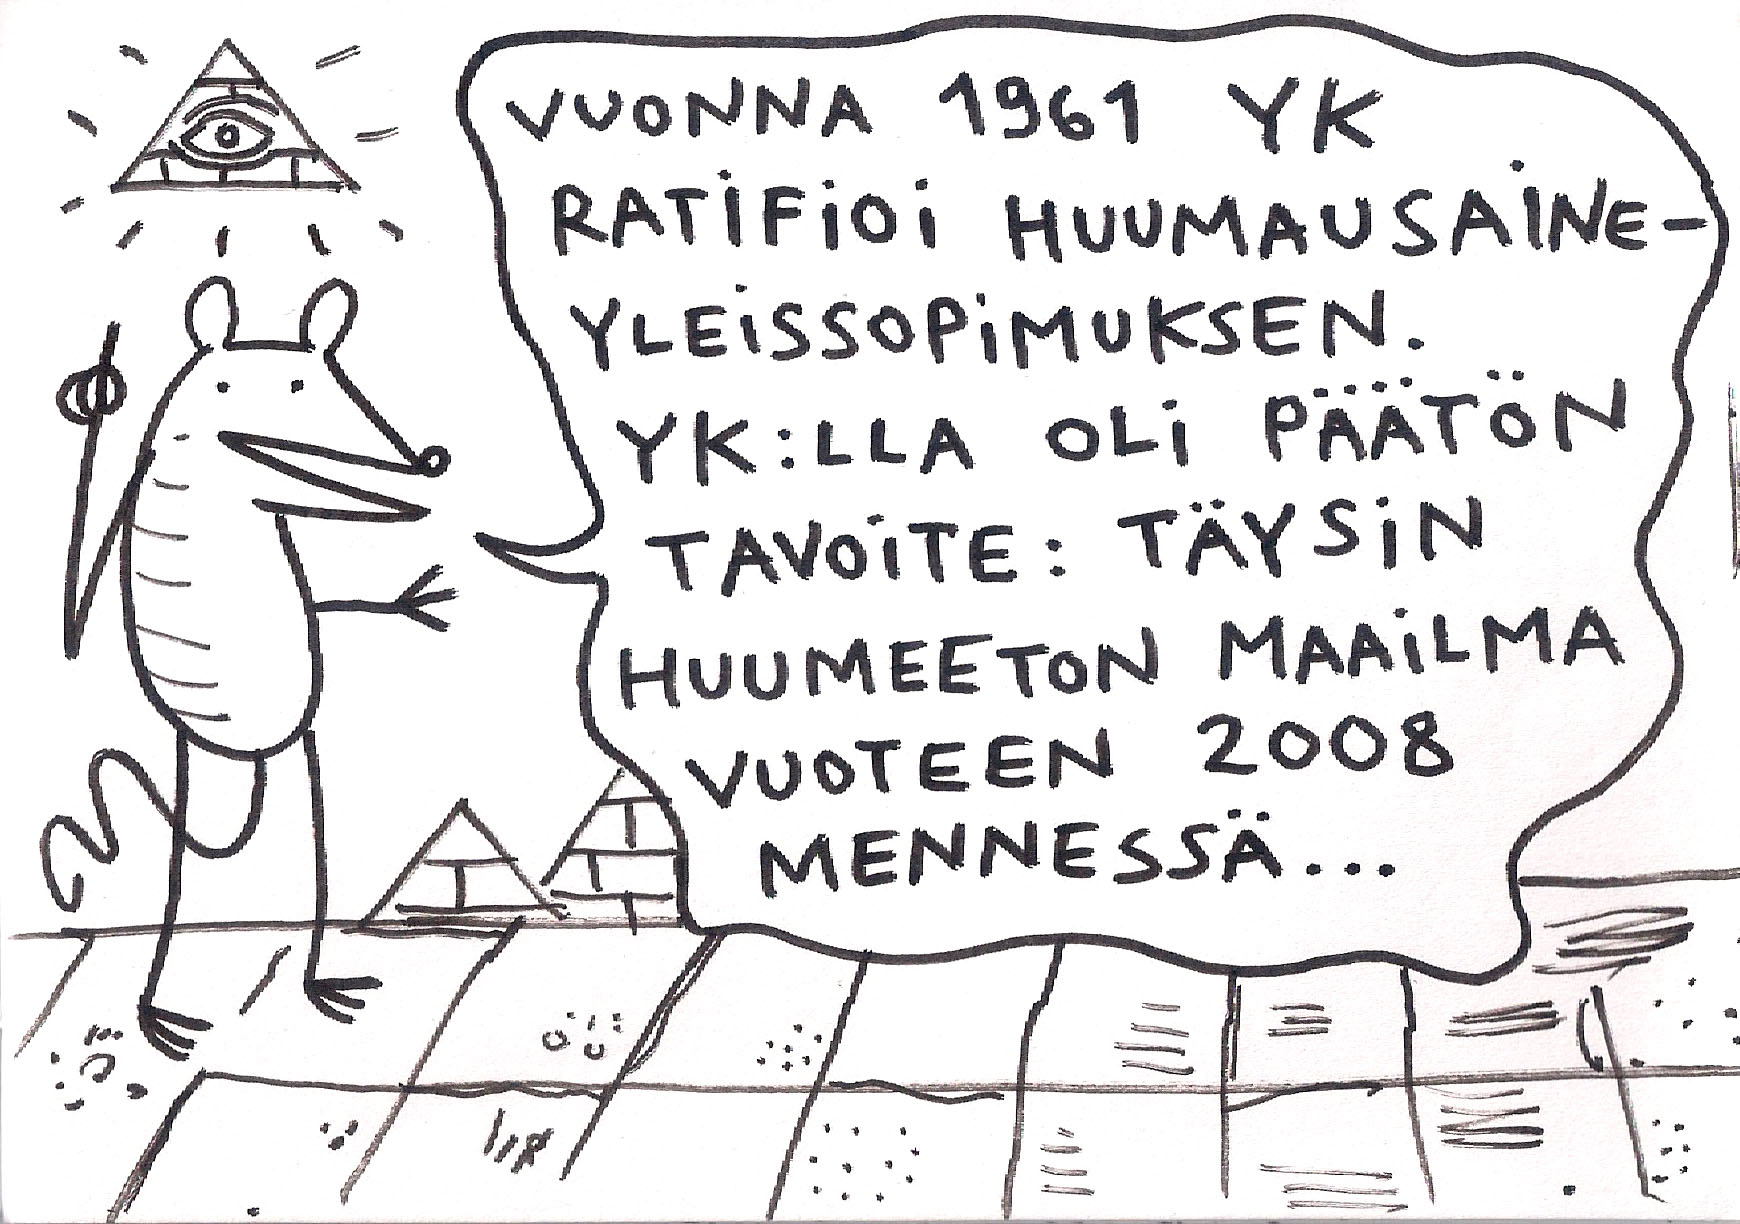 VUONNA 1961 YK
RATIFIOI HUUMAUSAINE-
YLEISSOPIMUKSEN.
YK:LLA OLI PÄÄTÖN
TAVOITE: TÄYSIN
HUUMEETON MAAILMA
VUOTEEN 2008
MENNESSÄ...